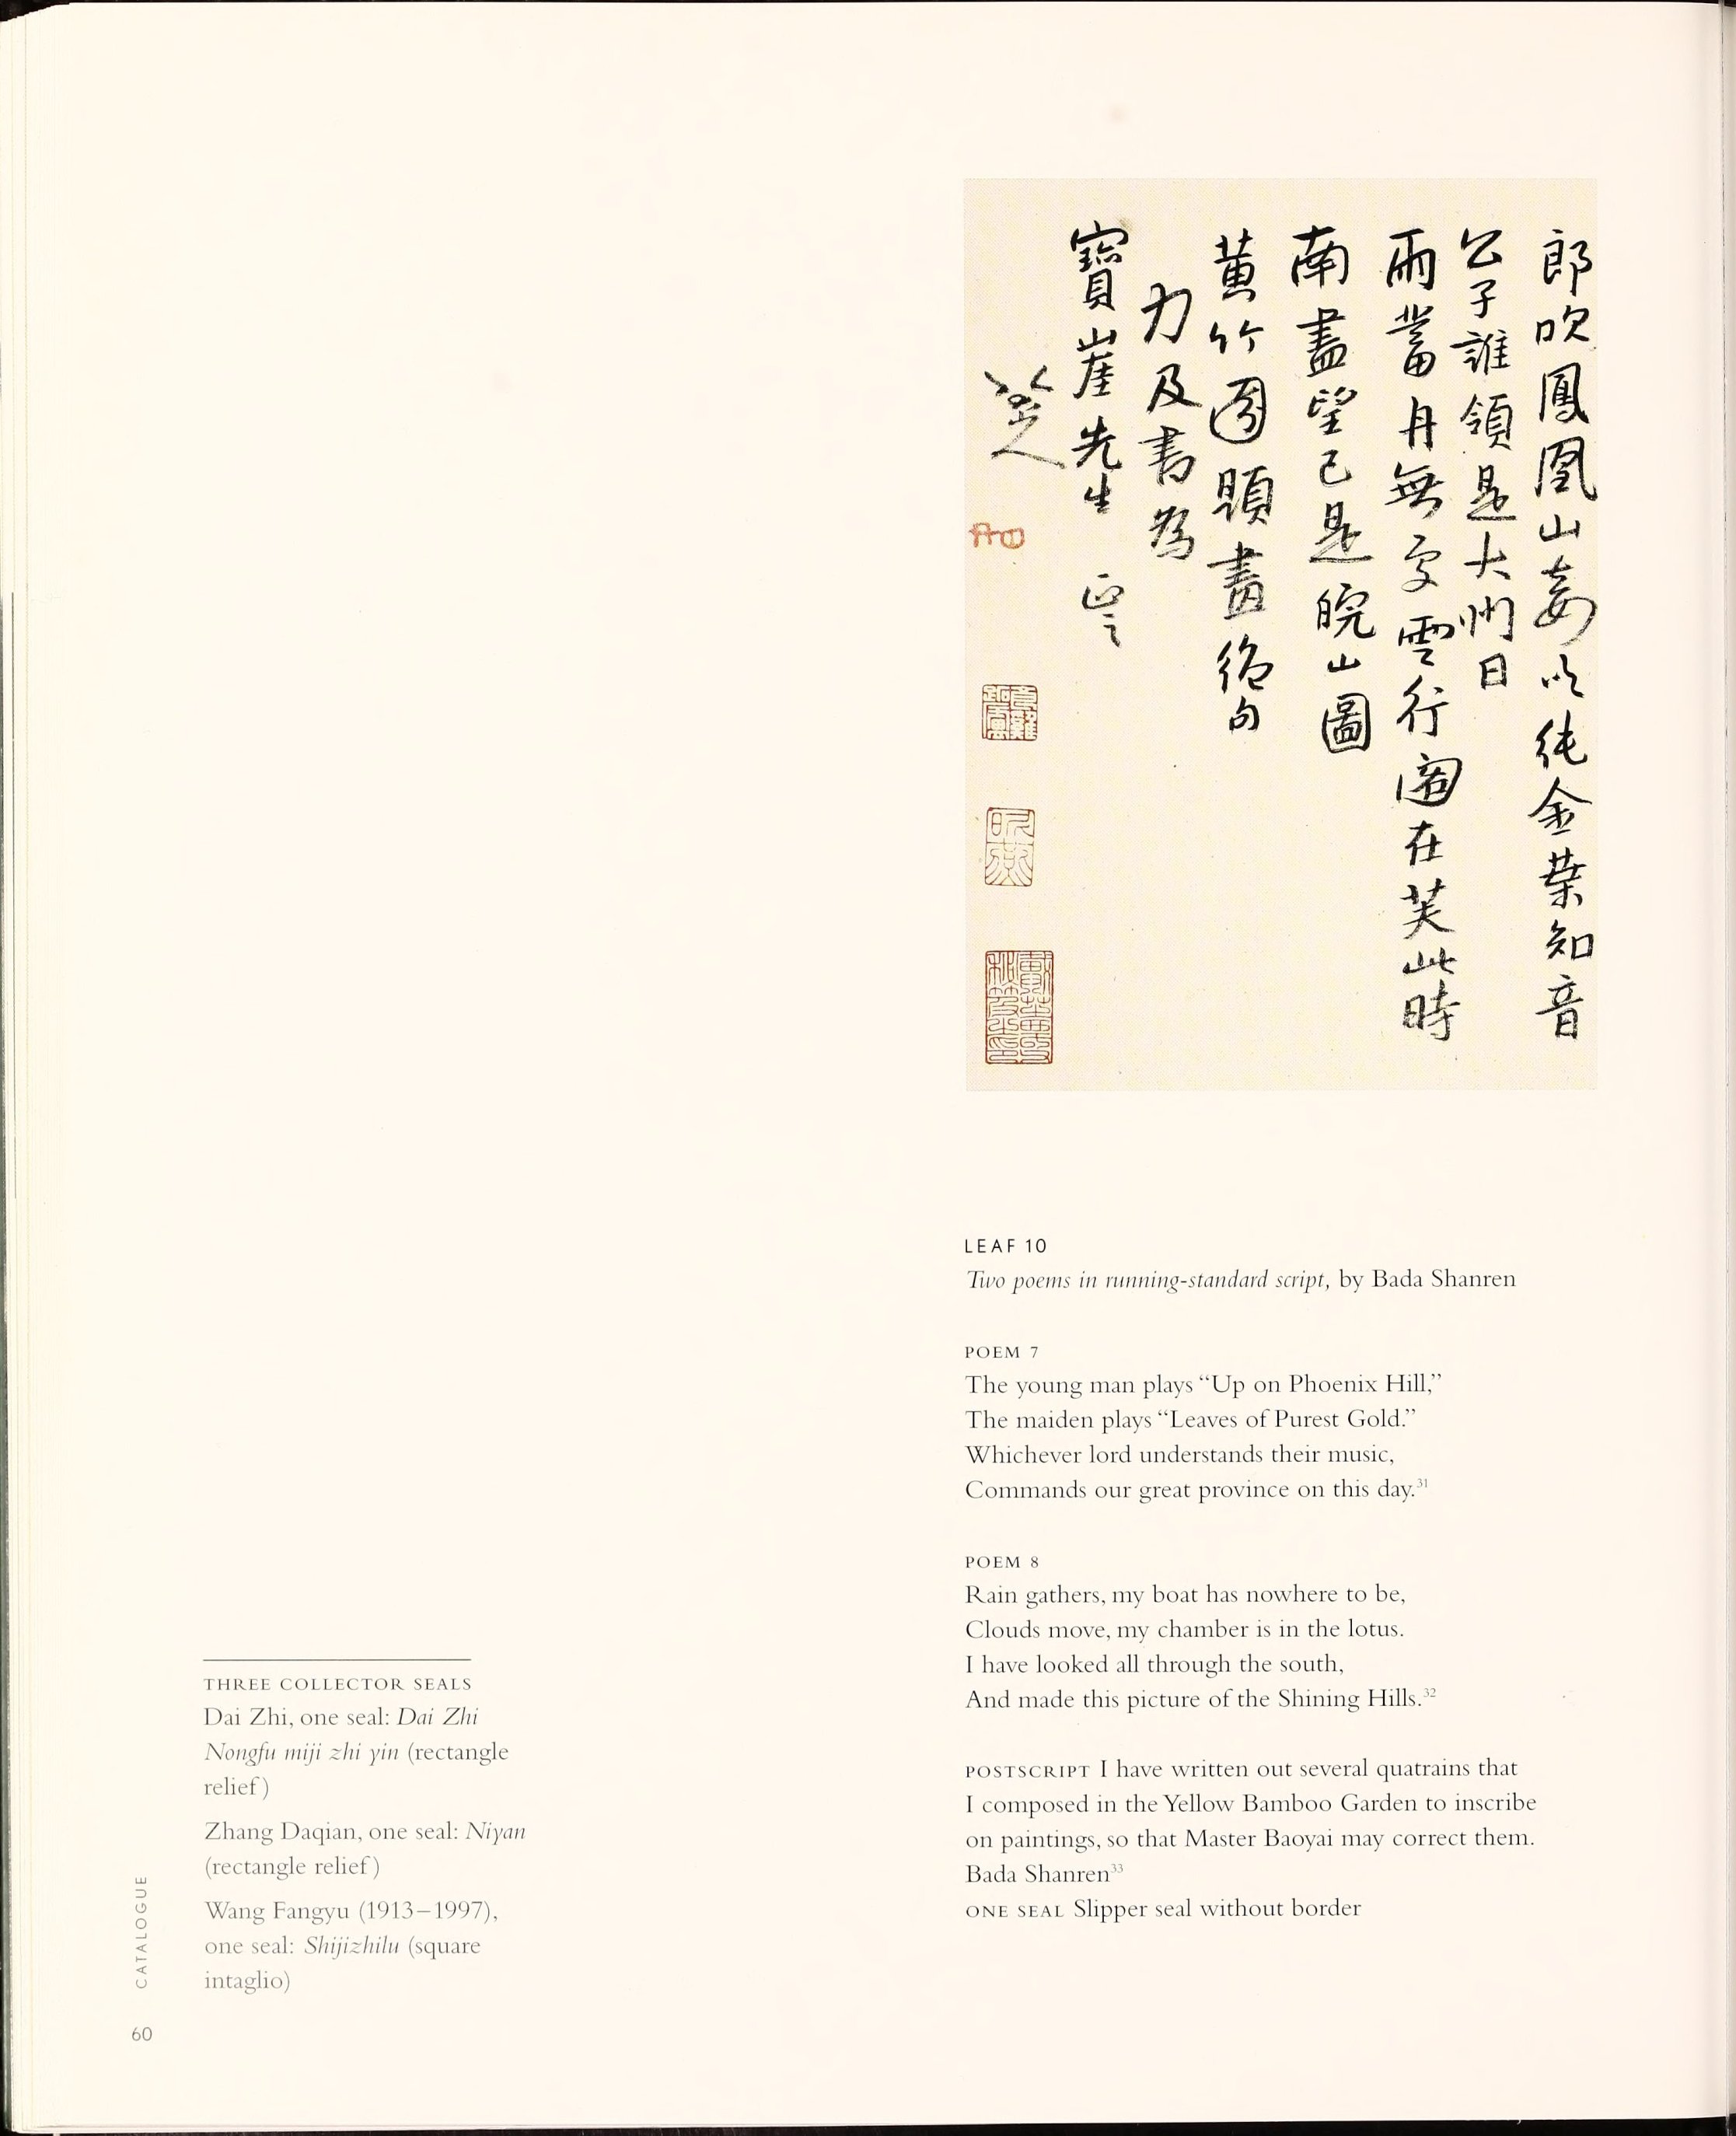 郎吹鳳凰山妾吹純金葉知音
公子誰領是大州日
雨蓄舟無處雲行閣在芙此時
南盡望已是皖山圖
黃竹園題畫絕句
力及書為
寶崖先生 正之
八大山人
LEAF 10
Two poems in running-standard script, by Bada Shanren
POEM 7
The young man plays “Up on Phoenix Hill,”
The maiden plays “Leaves of Purest Gold.”
Whichever lord understands their music,
Commands our great province on this day.31
POEM 8
Rain gathers, my boat has nowhere to be,
Clouds move, my chamber is in the lotus.
I have looked all through the south,
And made this picture of the Shining Hills.32
POSTSCRIPT I have written out several quatrains that
I composed in the Yellow Bamboo Garden to inscribe
on paintings, so that Master Baoyai may correct them.
Bada Shanren33
ONE SEAL Slipper seal without border
THREE COLLECTOR SEALS
Dai Zhi, one seal: Dai Zhi
Nongfu miji zhi yin (rectangle
relief)
Zhang Daqian, one seal: Niyan
(rectangle relief)
Wang Fangyu (1913–1997),
one seal: Shijizhilu (square
intaglio)
CATALOGUE
60